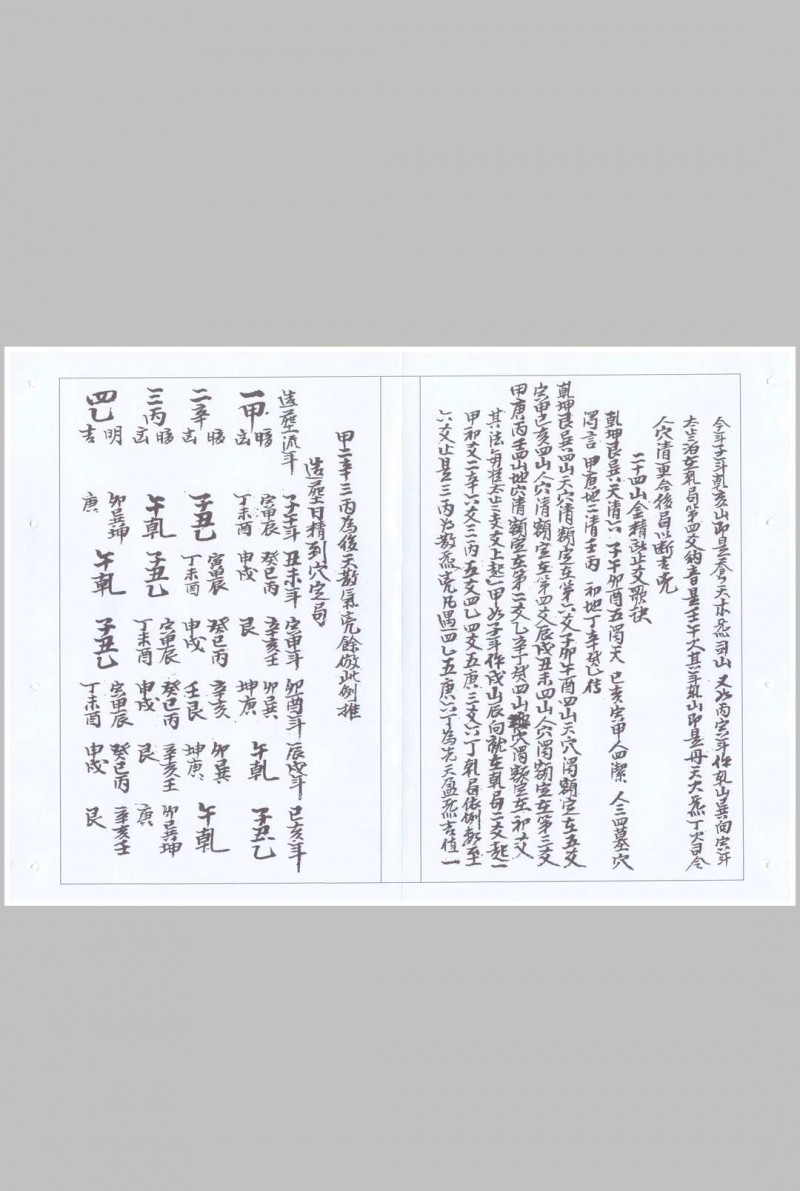 今年子年乾亥山即是春夕天木炁司山 又如丙寅年作乾山巽向寅年
太歲泊在乾局第四爻納音是壬午火其年乾山即是丹天火炁丁火司令
人穴清重合後局以斷吉凶
二十四山金精 止爻歌诀
乾坤艮巽天清六 子午卯酉五濁天 巳亥寅甲人四潔 人三四墓穴
濁言 甲庚地二清壬丙 初地丁辛癸乙传
乾坤艮巽四山天穴清額定在第六爻子卯午酉四山天穴濁額定在五爻
寅甲巳亥四山人穴清額定在第四爻辰戌丑未四山人穴濁額定在第三爻
甲庚丙壬四山地穴清額定在第二爻乙辛丁癸四山 穴濁額定在一初爻
其法每從太歲支上起一甲如子年作戌山辰向就在乾局二爻起一
甲初爻二辛六爻三丙五爻四乙四爻五庚三爻六丁乾局依例數至
六爻止是三丙為數炁完凡遇四乙五庚六丁為先天盈炁吉值一
甲二辛三丙為後天數氣完餘倣此例推
造塟日精到穴定局
造塟流年 子午年 丑未年 寅申年 卯酉年 辰戌年 巳亥年
一甲 凶 寅甲辰 丁未酉 癸巳丙 申戌 辛亥壬 艮 卯巽 坤庚 午乾 子丑乙
二辛 凶 子丑乙 寅甲辰 丁未酉 癸巳丙 申戌 辛亥 壬艮 卯巽 坤庚 午乾
三丙 凶 午乾 子丑乙 寅甲辰 丁未酉 癸巳丙 申戌 辛亥壬 艮 卯巽坤 庚
四乙 明 吉 卯巽坤 庚 午乾 子丑乙 寅甲辰 丁未酉 癸巳丙 申戌 辛亥壬 艮